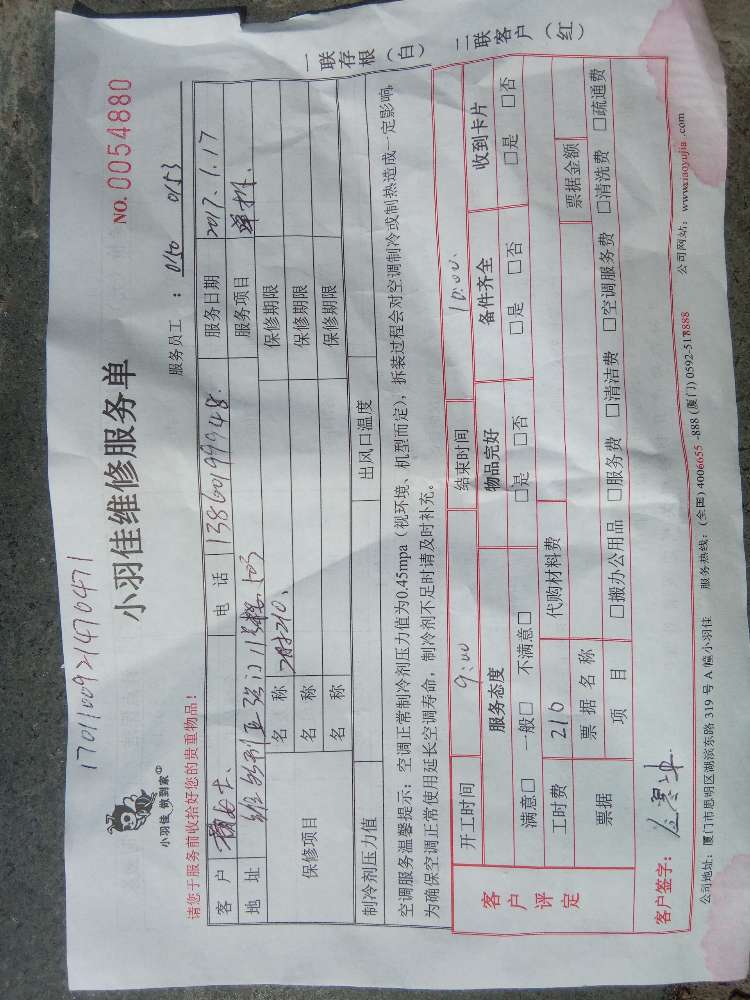 17011009921470471
小羽佳 做到家
小羽佳维修服务单
NO. 0054880
请您于服务前收拾好您的贵重物品!
服务员工: 0150 0153
客户 女士. 电话 13860199948. 服务日期 2017.1.17
地址 103 服务项目 单拆.
保修项目 名称 210. 保修期限
名称 保修期限
名称 保修期限
制冷剂压力值 出风口温度
空调服务温馨提示: 空调正常制冷剂压力值为0.45mpa(视环境、机型而定),拆装过程会对空调制冷或制热造成一定影响,
为确保空调正常使用延长空调寿命,制冷剂不足时请及时补充。
一联存根(白) 二联客户(红)
客户评定
开工时间 9:00 结束时间 10:00.
服务态度 物品完好 备件齐全 收到卡片
满意□ 一般□ 不满意□ □是 □否 □是 □否 □是 □否
工时费 210 代购材料费
票据 票据名称 票据金额
项目 □搬办公用品 □服务费 □清洁费 □空调服务费 □清洗费 □疏通费
客户签字:
公司地址: 厦门市思明区湖滨东路 319 号 A 幢小羽佳 服务热线: (全国) 4006655-888 (厦门) 0592-5188888 公司网站: www.xiaoyujia.com